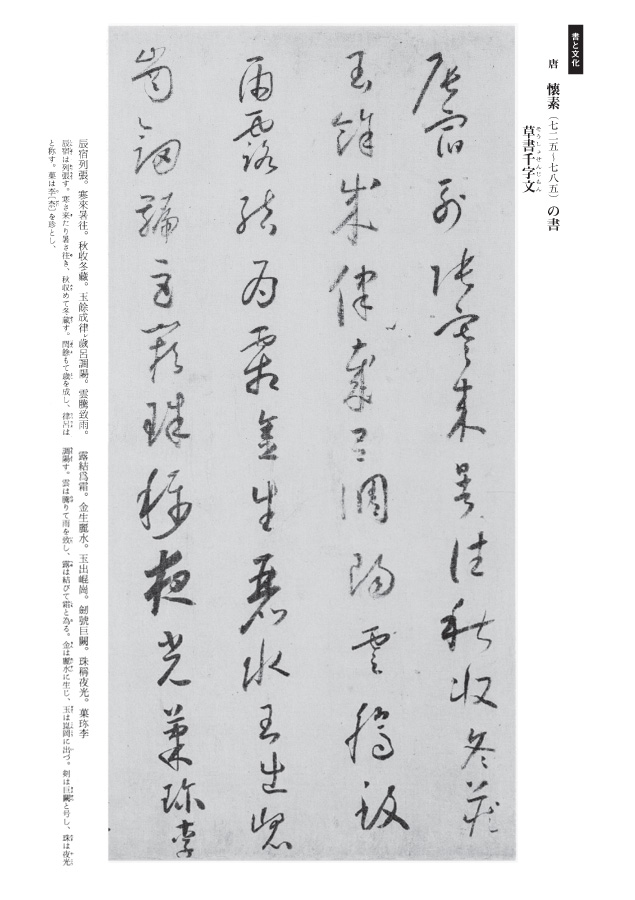 書と文化
唐　懐素（七二五～七八五）の書
草書千字文
そうしょせんじもん
辰宿列張寒来暑往秋収冬蔵
玉餘成律歳呂調陽雲騰致
雨露結為霜金生麗水玉出崐
崗劒號巨闕珠稱夜光菓珎李
辰宿列張。寒來暑往。秋收冬藏。玉餘成律歳呂調陽。雲騰致雨。　露結爲霜。金生麗水。玉出崐崗。劒號巨闕。珠稱夜光。菓珎李
辰宿は列張す。寒さ来たり暑さ往き、秋収めて冬蔵す。閏餘もて歳を成し、律呂は　調陽す。雲は騰りて雨を致し、露は結びて霜と為る。金は麗水に生じ、玉は崑岡に出づ。剣は巨闕と号し、珠は夜光
と称す。菓は李［柰］を珍とし、